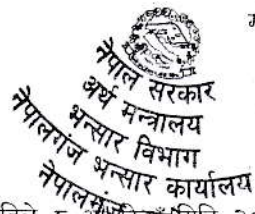 नेपाल सरकार
अर्थ मन्त्रालय
भन्सार विभाग
नेपालगंज भन्सार कार्यालय